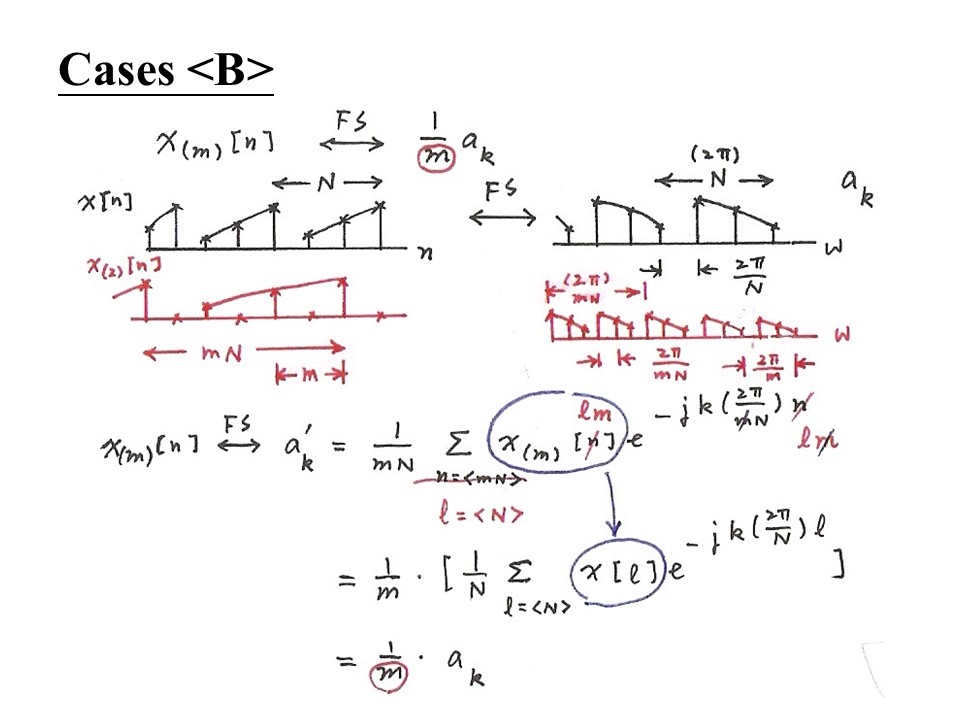 Cases <B>
x₍ₘ₎[n] ⟷ FS 1/m aₖ
x[n] ← N → n FS ⟷ (2π) ← N → aₖ ω
→| |← 2π/N
x₍₂₎[n] (2π) mN ω
← mN → →| |← 2π/mN →| 2π/m |←
|← m →|
x₍ₘ₎[n] ⟷ FS a'ₖ = 1/mN Σ n=<mN> x₍ₘ₎[n] e^-jk(2π/mN)n
l=<N> lm lm
= 1/m · [1/N Σ l=<N> x[l] e^-jk(2π/N)l]
= 1/m · aₖ